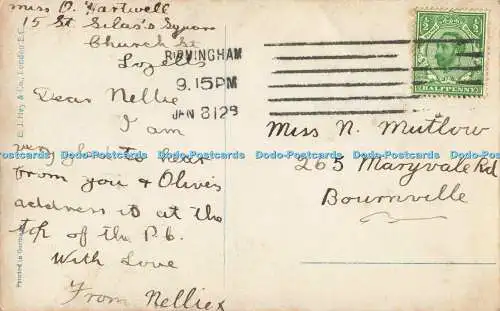 Miss O. Hartwell
15 St Silas's Square
Church St
Lozells
BIRMINGHAM
9.15PM
JAN 3 12 9
HALFPENNY
Dear Nellie
I am
very glad to hear
from you & Olive's
address is at the
top of the P.C.
With Love
From Nellie x
Miss N. Mutlow
265 Maryvale Rd
Bournville
E. J. Hey & Co., London E.C.
Printed in
Dodo-Postcards Dodo-Postcards Dodo-Postcards Dodo-Postcards Dodo-Postcards Dodo-Postcards